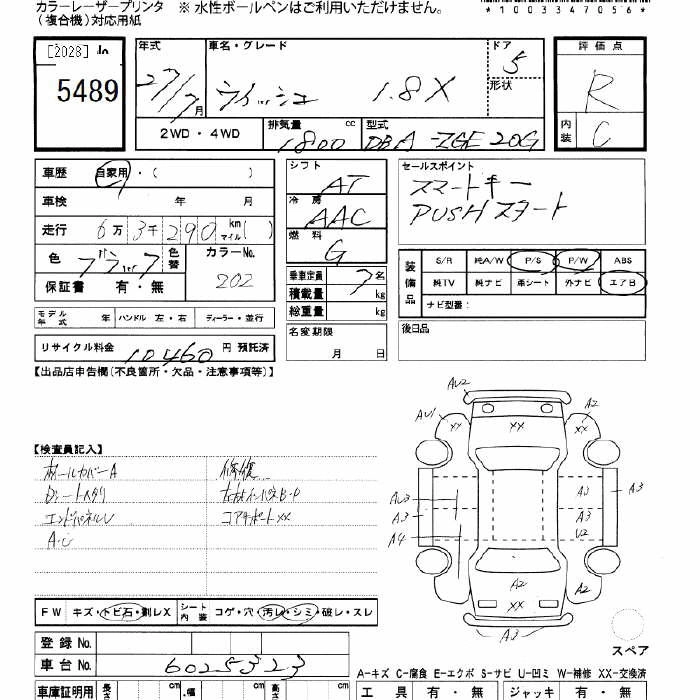 カラーレーザープリンタ ※ 水性ボールペンはご利用いただけません。
(複合機)対応用紙
*1003347056*
[2028]
5489
年式 車名・グレード ドア 評価点
27/7月 ウィッシュ 1.8X 5 R
形状
2WD・4WD 排気量 cc 型式 内装 C
1800 DBA-ZGE20G
車歴 自家用・( )
シフト AT
セールスポイント
スマートキー
PUSHスタート
車検 年 月
冷房 AAC
走行 6万3千290km マイル( )
燃料 G
色 ブラック 色替 カラーNo. 202
乗車定員 7名
保証書 有・無
積載量 kg
総重量 kg
装備品 S/R 純A/W P/S P/W ABS
純TV 純ナビ 革シート 外ナビ エアB
ナビ型番:
モデル年式 年 ハンドル 左・右 ディーラー・並行
名変期限 月 日
後日品
リサイクル料金 10460 円 預託済
【出品店申告欄(不良箇所・欠品・注意事項等)】
AU2
A2
AU1 XX XX XX
【検査員記入】
ホールカバーA 修復
Dシートヘタリ
エンドパネルU コアサポートXX
AU3 A2 A3
A3 A3
A4 U2
A2
XX
A3
FW キズ・トビ石・割レX シート内装 コゲ・穴・汚レ・シミ・破レ・スレ
スペア
登録 No.
車台 No. 6025323
A-キズ C-腐食 E-エクボ S-サビ U-凹ミ W-補修 XX-交換済
車庫証明用 長さ cm ・幅 cm 高さ cm
工具 有・無 ジャッキ 有・無